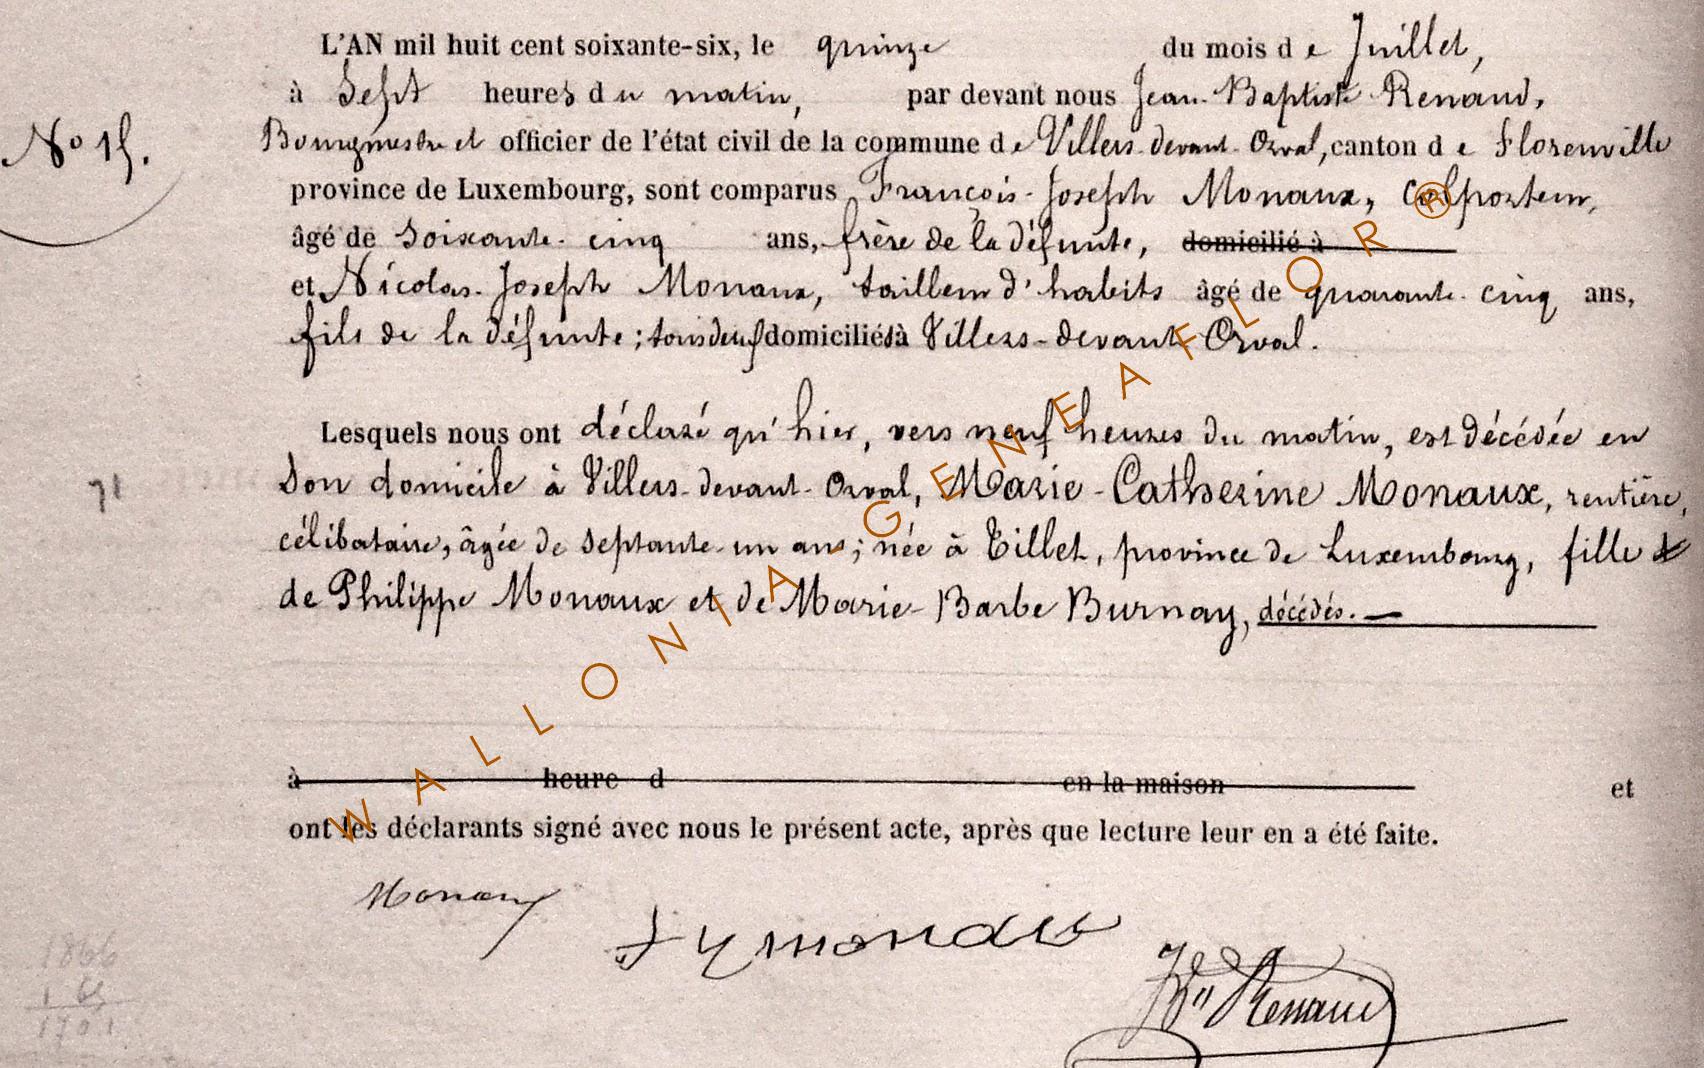 L'AN mil huit cent soixante-six, le quinze du mois de Juillet,
à Sept heures du matin, par devant nous Jean-Baptiste Renaud,
N° 15. Bourgmestre et officier de l'état civil de la commune de Villers-devant-Orval, canton de Florenville
province de Luxembourg, sont comparus François-Joseph Monaux, colporteur,
âgé de soixante-cinq ans, frère de la défunte, domicilié à
et Nicolas-Joseph Monaux, tailleur d'habits âgé de quarante-cinq ans,
fils de la défunte; tous deux domiciliés à Villers-devant-Orval.
Lesquels nous ont déclaré qu'hier, vers neuf heures du matin, est décédée en
71 son domicile à Villers-devant-Orval, Marie-Catherine Monaux, rentière,
célibataire, âgée de septante-un ans; née à Tillet, province de Luxembourg, fille
de Philippe Monaux et de Marie-Barbe Burnay, décédés.
à heure d en la maison et
ont les déclarants signé avec nous le présent acte, après que lecture leur en a été faite.
Monaux
JB Renaud
1866
WALLONIA - GENEAFLOR ®